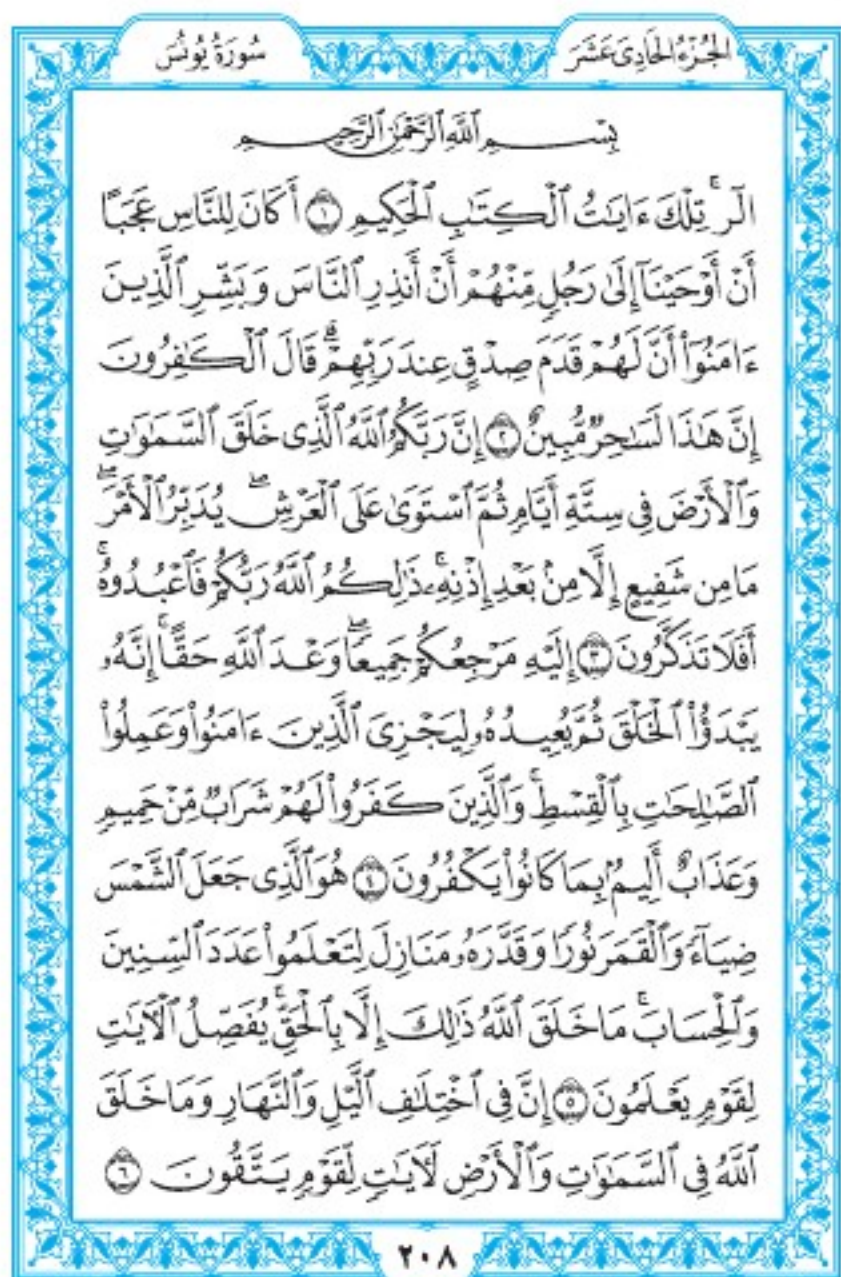 الجُزْءُ الحَادِىَ عَشَرَ
سُورَةُ يُونُسَ
بِسْمِ ٱللَّهِ ٱلرَّحْمَٰنِ ٱلرَّحِيمِ
الٓرۚ تِلْكَ ءَايَٰتُ ٱلْكِتَٰبِ ٱلْحَكِيمِ ١ أَكَانَ لِلنَّاسِ عَجَبًا
أَنْ أَوْحَيْنَآ إِلَىٰ رَجُلٍ مِّنْهُمْ أَنْ أَنذِرِ ٱلنَّاسَ وَبَشِّرِ ٱلَّذِينَ
ءَامَنُوٓا۟ أَنَّ لَهُمْ قَدَمَ صِدْقٍ عِندَ رَبِّهِمْۗ قَالَ ٱلْكَٰفِرُونَ
إِنَّ هَٰذَا لَسَٰحِرٌ مُّبِينٌ ٢ إِنَّ رَبَّكُمُ ٱللَّهُ ٱلَّذِى خَلَقَ ٱلسَّمَٰوَٰتِ
وَٱلْأَرْضَ فِى سِتَّةِ أَيَّامٍ ثُمَّ ٱسْتَوَىٰ عَلَى ٱلْعَرْشِۖ يُدَبِّرُ ٱلْأَمْرَۖ
مَا مِن شَفِيعٍ إِلَّا مِنۢ بَعْدِ إِذْنِهِۦۚ ذَٰلِكُمُ ٱللَّهُ رَبُّكُمْ فَٱعْبُدُوهُۚ
أَفَلَا تَذَكَّرُونَ ٣ إِلَيْهِ مَرْجِعُكُمْ جَمِيعًاۖ وَعْدَ ٱللَّهِ حَقًّاۚ إِنَّهُۥ
يَبْدَؤُا۟ ٱلْخَلْقَ ثُمَّ يُعِيدُهُۥ لِيَجْزِىَ ٱلَّذِينَ ءَامَنُوا۟ وَعَمِلُوا۟
ٱلصَّٰلِحَٰتِ بِٱلْقِسْطِۚ وَٱلَّذِينَ كَفَرُوا۟ لَهُمْ شَرَابٌ مِّنْ حَمِيمٍ
وَعَذَابٌ أَلِيمٌۢ بِمَا كَانُوا۟ يَكْفُرُونَ ٤ هُوَ ٱلَّذِى جَعَلَ ٱلشَّمْسَ
ضِيَآءً وَٱلْقَمَرَ نُورًا وَقَدَّرَهُۥ مَنَازِلَ لِتَعْلَمُوا۟ عَدَدَ ٱلسِّنِينَ
وَٱلْحِسَابَۚ مَا خَلَقَ ٱللَّهُ ذَٰلِكَ إِلَّا بِٱلْحَقِّۚ يُفَصِّلُ ٱلْءَايَٰتِ
لِقَوْمٍ يَعْلَمُونَ ٥ إِنَّ فِى ٱخْتِلَٰفِ ٱلَّيْلِ وَٱلنَّهَارِ وَمَا خَلَقَ
ٱللَّهُ فِى ٱلسَّمَٰوَٰتِ وَٱلْأَرْضِ لَءَايَٰتٍ لِّقَوْمٍ يَتَّقُونَ ٦
٢٠٨